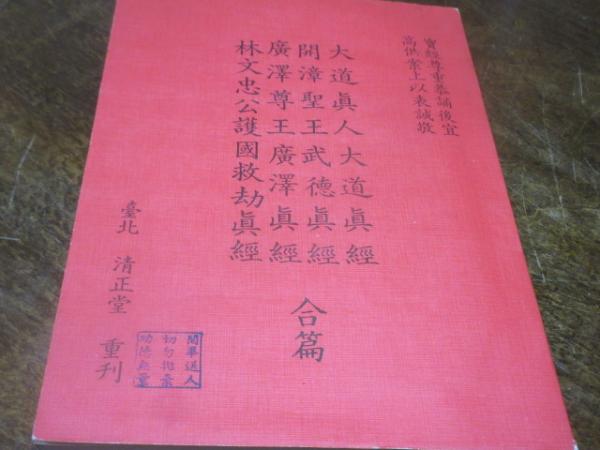 寶經尊重恭誦後宜
高供案上以表誠敬
大道眞人大道眞經
開漳聖王武德眞經
廣澤尊王廣澤眞經
林文忠公護國救劫眞經
合篇
臺北 清正堂 重刊
閱畢送人
切勿拋棄
功德無量